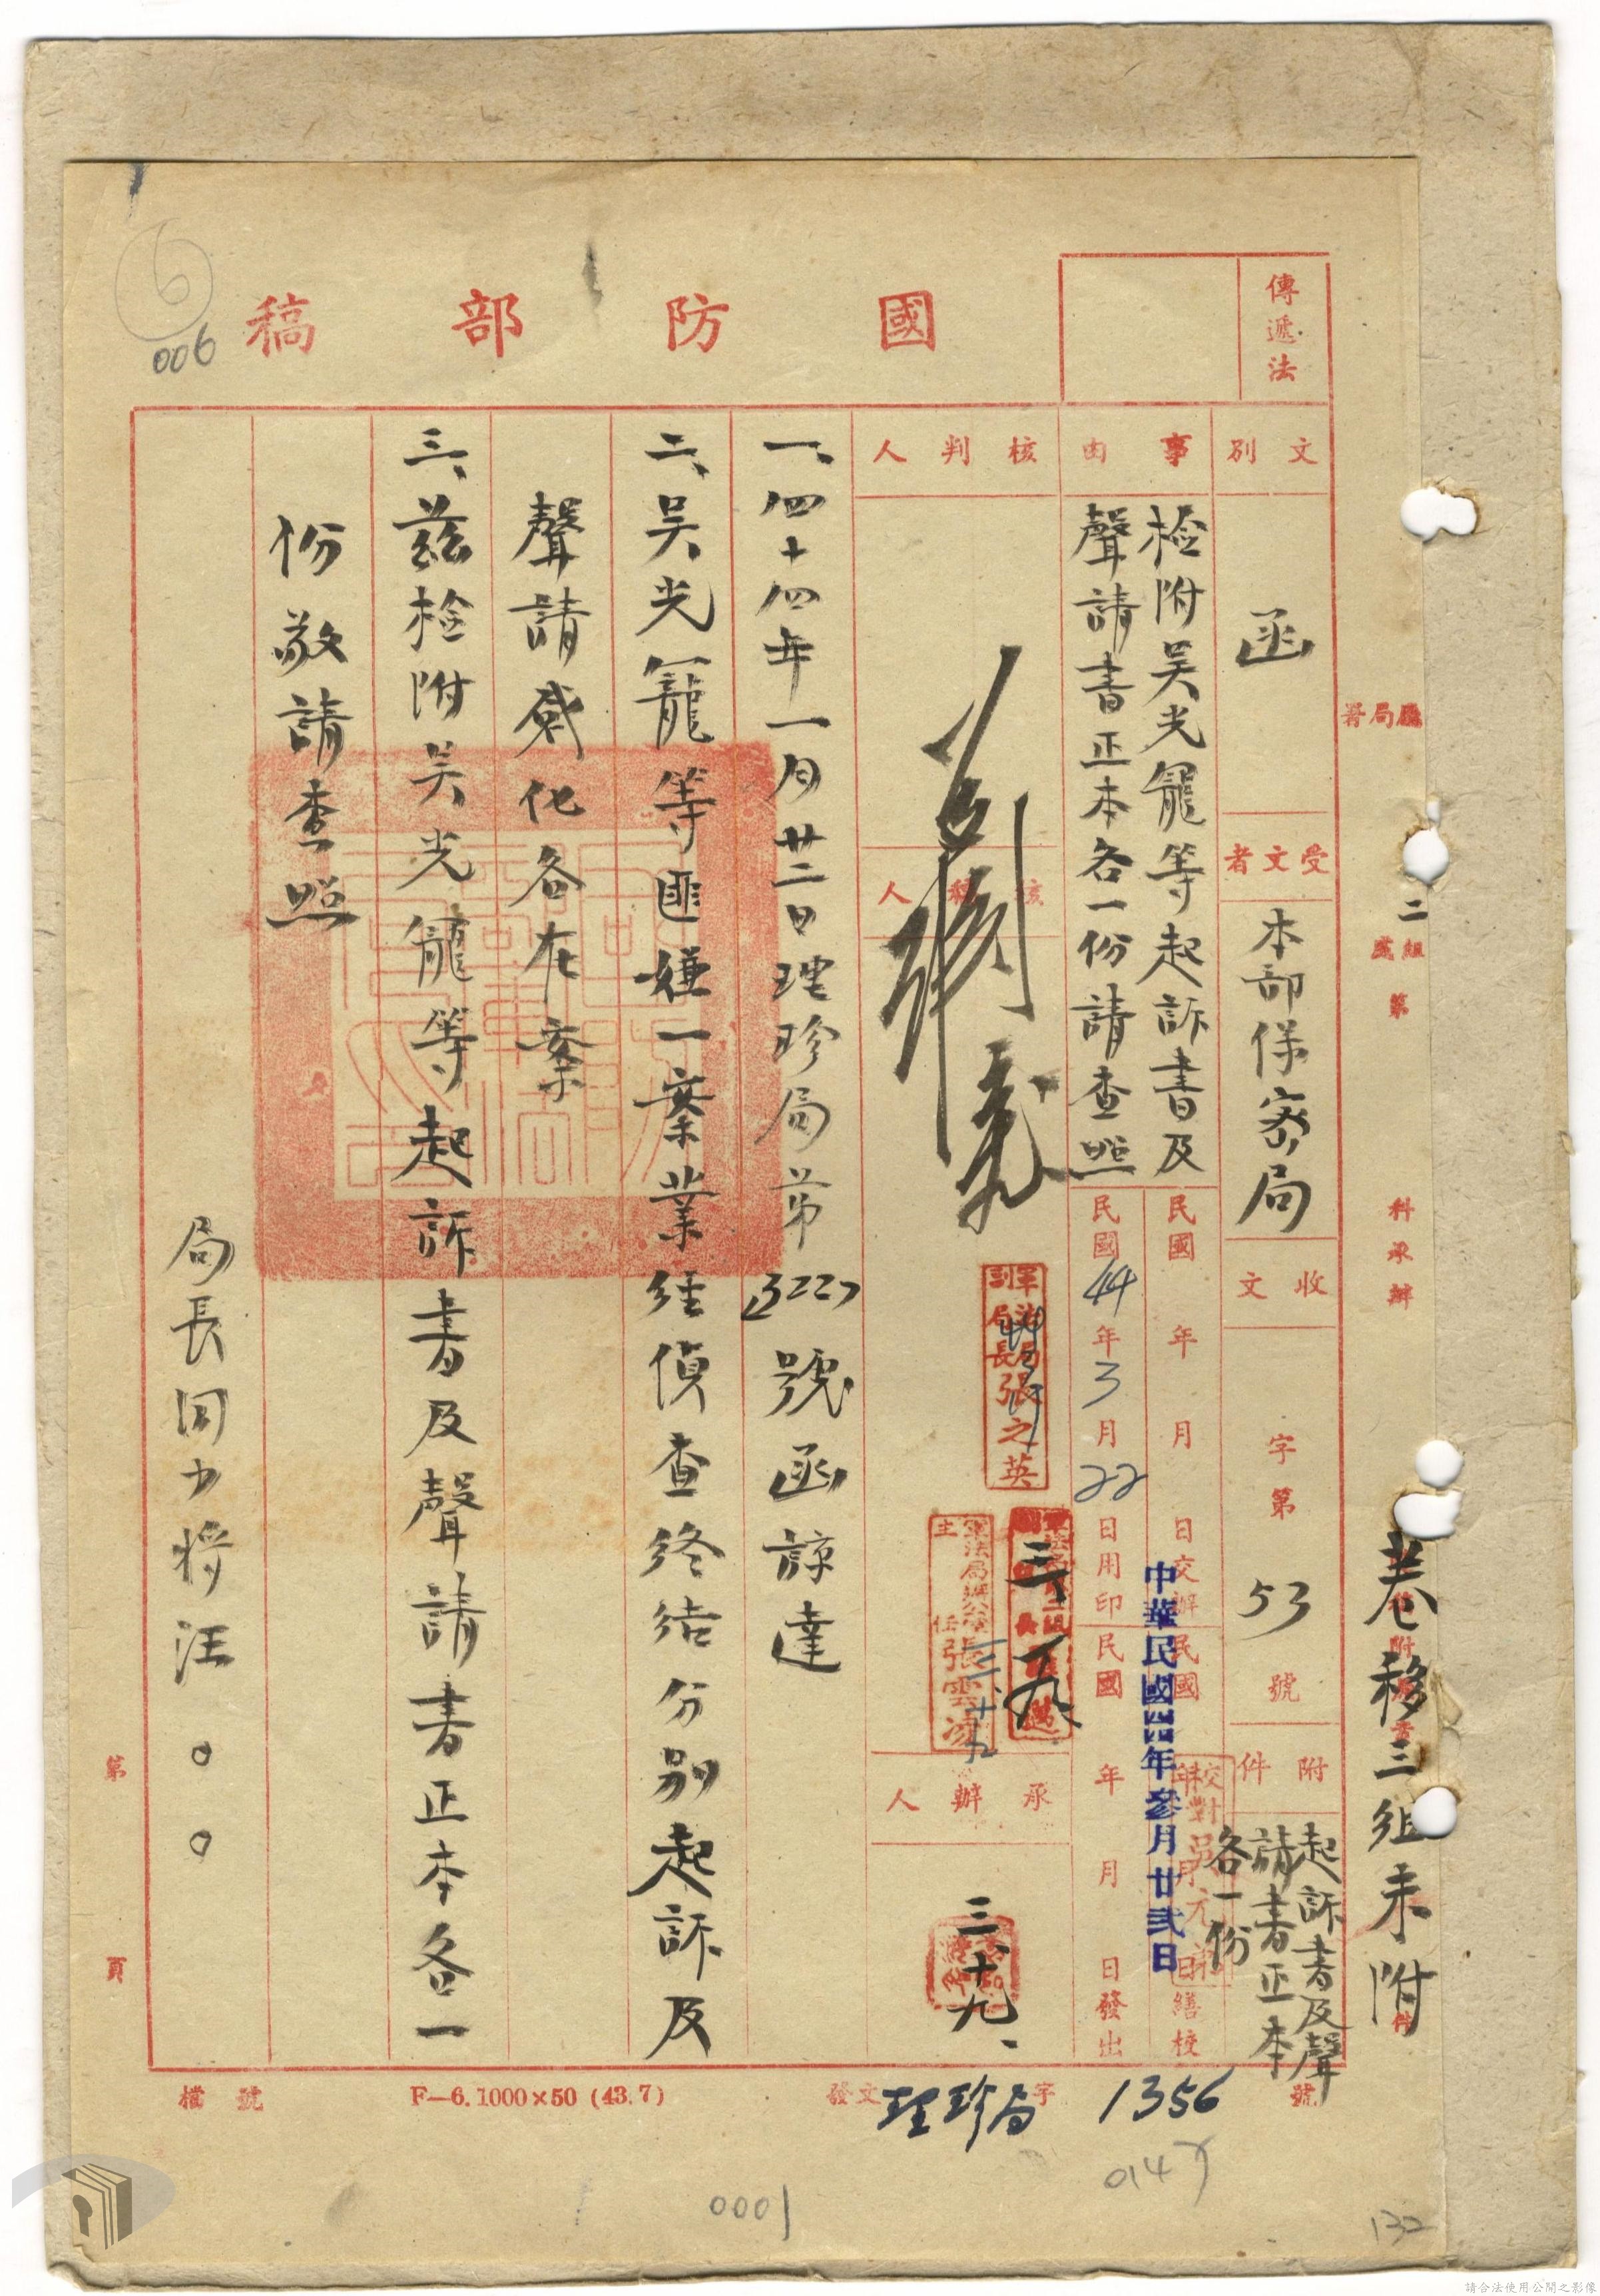 國防部稿
傳遞法
文別
函
受文者
本部保密局
收文
字第
53
號
附件
起訴書及聲
請書正本
各一份
事由
檢附吳光籠等起訴書及
聲請書正本各一份請查照
民國 年 月 日交辦
民國44年3月22日用印
民國 年 月 日繕校
民國 年 月 日發出
中華民國四四年叁月廿弍日
核判人
核稿人
承辦人
軍法局
副局長張之英
軍法局辦公室
主任張雲
三、十九、
一、四十四年一月廿二日理珍局第
號函諒達
二、吳光籠等匪嫌一案業經偵查終結分別起訴及
聲請感化各在案
三、茲檢附吳光籠等起訴書及聲請書正本各一
份敬請查照
局長周少將汪○○
第 頁
卷移三組未附
二組
第
科承辦
檔號
F—6. 1000×50 (43. 7)
發文理珍局字1356號
006
0001
0147
132
請合法使用公開之影像